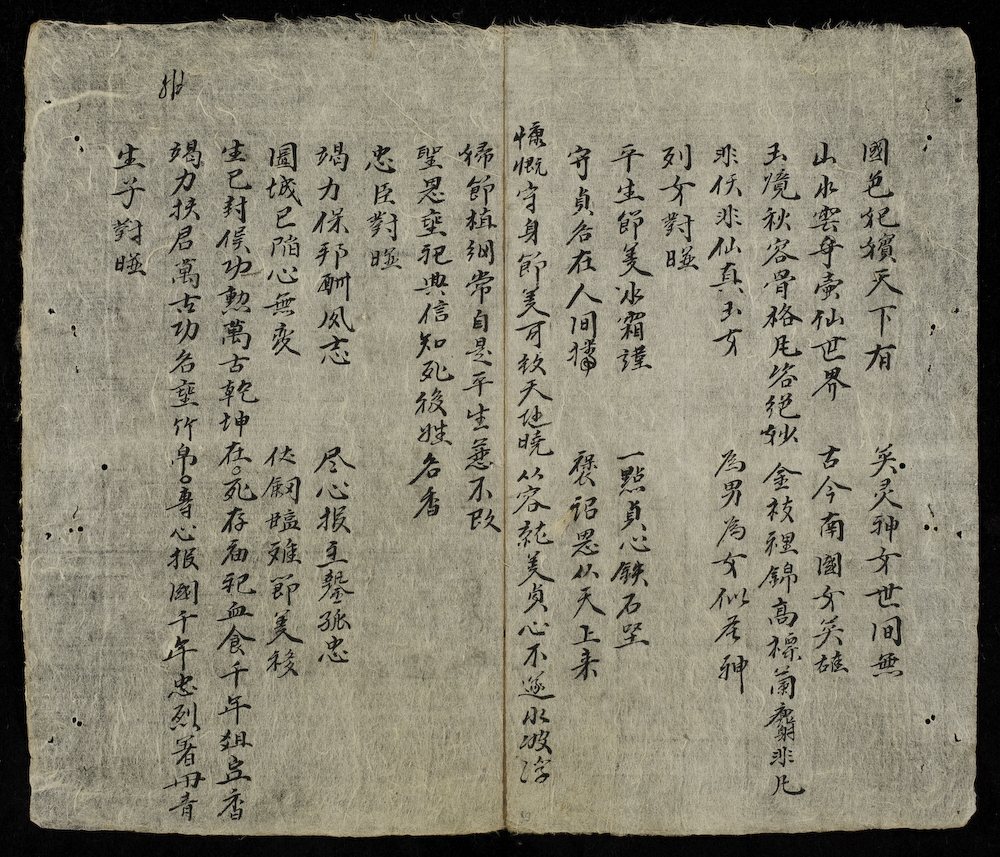 國色妃嬪天下有 英灵神女世间無
山水雲舟壷仙世界 古今南國女英雄
玉境秋容骨格凡姿絕妙 金枝裡錦高標蘭麝非凡
非仸非仙真玉女 为男为女似若神
列女對聯
平生節美氷霜謹 一點貞心鉄石堅
守貞名在人间播 褒詔恩从天上来
慷慨守身節美可教天地曉 从容就美貞心不逐水波浮
婦節植綱常自是平生慈不改
聖恩垂祀典信知死後姓名香
忠臣對聯
竭力保邦酬夙志 尽心报主罄孤忠
圖城已陷心無变 伏劍臨难節美移
生已封侯功勲萬古乾坤在 死存庙祀血食千年俎豆香
竭力扶君萬古功名垂竹帛 專心报國千年忠烈着丹青
生子對聯